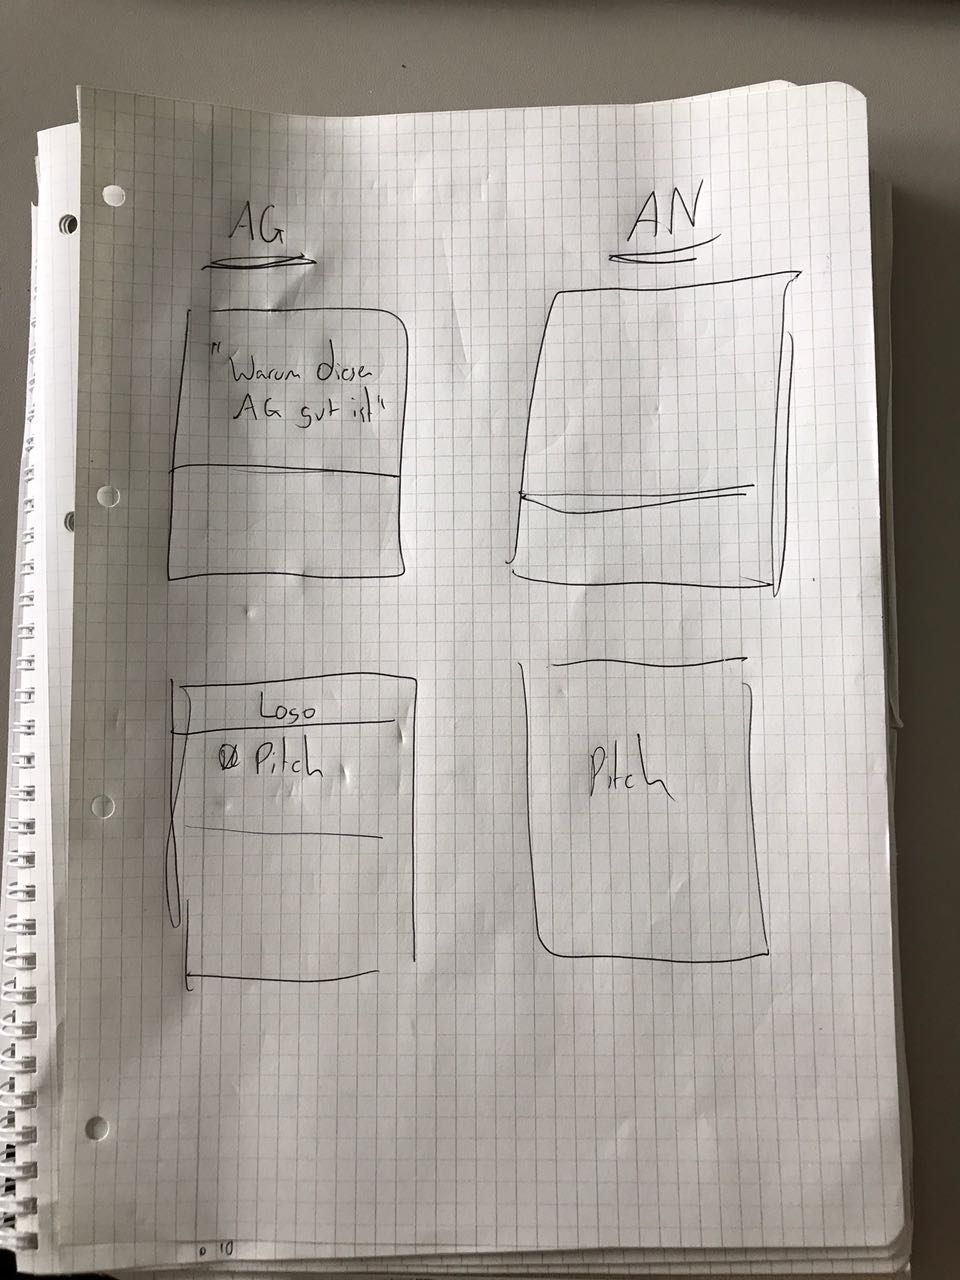 AG
AN
"Warum dieser
AG gut ist"
Logo
Pitch
Pitch
10